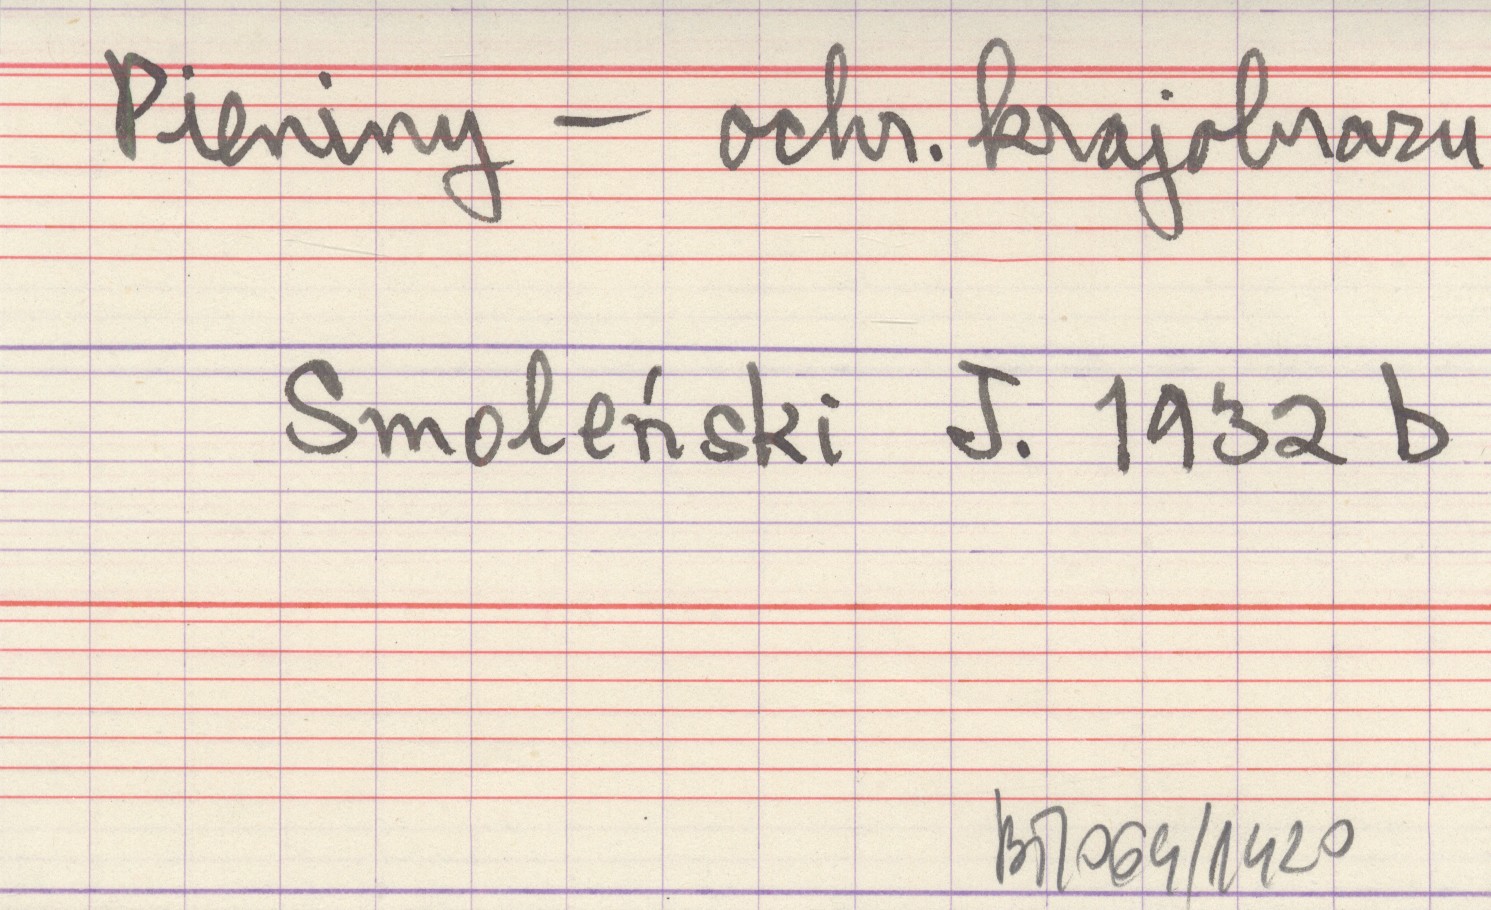 Pieniny – ochr. krajobrazu
Smoleński J. 1932 b